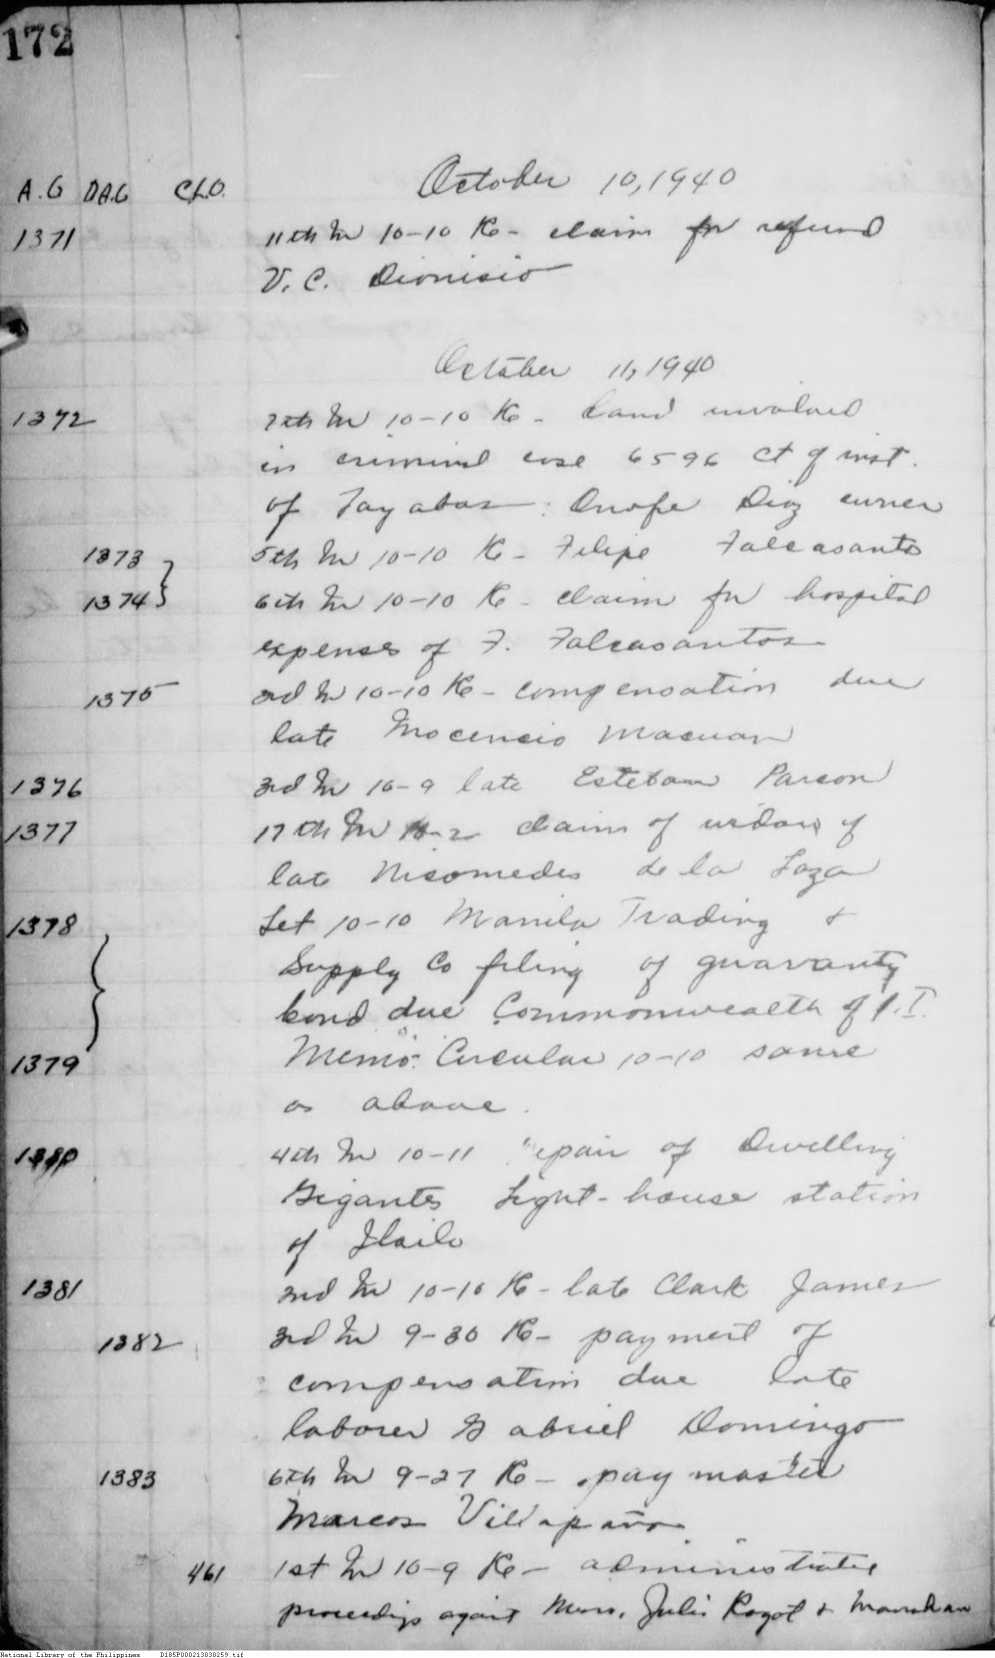 172
A.G D.A.G C.L.O. October 10, 1940
1371 11th In 10-10 Re- claim for refund
V. C. Dionisio
October 11, 1940
1372 7th In 10-10 Re - land involved
in criminal case 6596 Ct of inst.
of Tayabas: Onofre Diaz owner
1373 5th In 10-10 Re - Filipe Falcasantos
1374 6th In 10-10 Re - claim for hospital
expenses of F. Falcasantos
1375 3rd In 10-10 Re - compensation due
late Inocencio Macuan
1376 3rd In 10-9 late Esteban Parcon
1377 17th In claim of widow of
late Nicomedes de la
1378 Let 10-10 Manila Trading &
Supply Co filing of guaranty
bond due Commonwealth of P.I.
1379 Memo. Circular 10-10 same
as above.
1380 4th In 10-11 repair of Dwelling
Gigantes Light-house station
of Iloilo
1381 2nd In 10-10 Re - late Clark James
1382 3rd In 9-30 Re - payment of
compensation due late
laborer Gabriel Domingo
1383 6th In 9-27 Re - paymaster
Marcos Villapaña
461 1st In 10-9 Re - administrative
proceedings against Messrs. Julio &
National Library of the Philippines D185P000213838259.tif